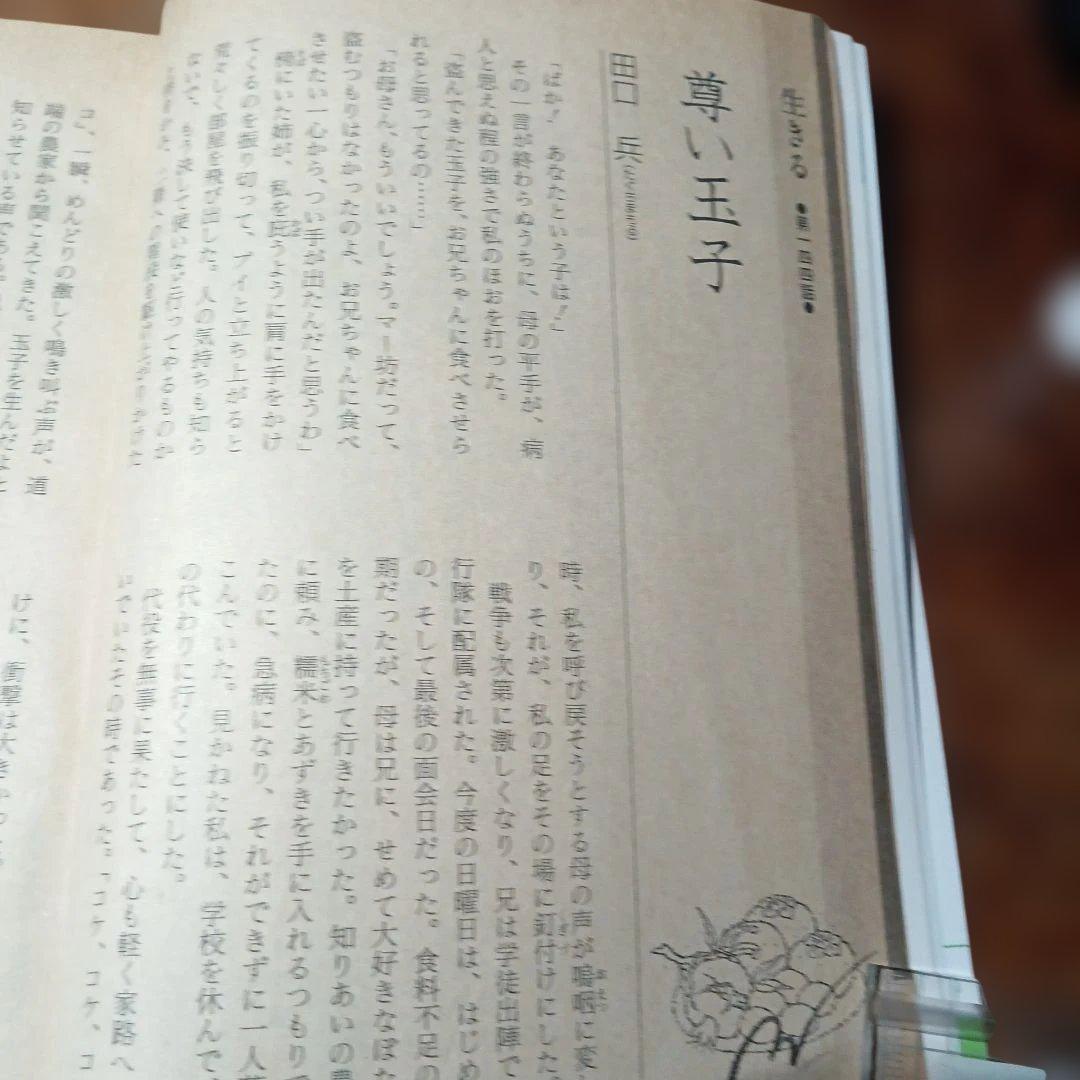 生きる ●第一四四話●
尊い玉子
田口 兵
「ばか! あなたという子は!」
その一言が終わらぬうちに、母の平手が、病
人と思えぬ程の強さで私のほおを打った。
「盗んできた玉子を、お兄ちゃんに食べさせら
れると思ってるの……」
「お母さん、もういいでしょう。マー坊だって、
盗むつもりはなかったのよ、お兄ちゃんに食べ
させたい一心から、つい手が出たんだと思うわ」
傍にいた姉が、私を庇うように肩に手をかけ
てくるのを振り切って、プイと立ち上がると
荒々しく部屋を飛び出した。人の気持ちも知ら
ないで、もう決して使いなど行ってやるものか
時、私を呼び戻そうとする母の声が嗚咽に変
り、それが、私の足をその場に釘付けにした。
戦争も次第に激しくなり、兄は学徒出陣で
行隊に配属された。今度の日曜日は、はじめ
の、そして最後の面会日だった。食料不足の
期だったが、母は兄に、せめて大好きなぼた
を土産に持って行きたかった。知りあいの農
に頼み、糯米とあずきを手に入れるつもりで
たのに、急病になり、それができずに一人
こんでいた。見かねた私は、学校を休んで、
の代わりに行くことにした。
代役を無事に果たして、心も軽く家路へ
いでいたその時であった。「コケ、コケ、コ
コ、一瞬、めんどりの激しく鳴き叫ぶ声が、道
端の農家から聞こえてきた。玉子を生んだよと
知らせている声である
けに、衝撃は大きかった